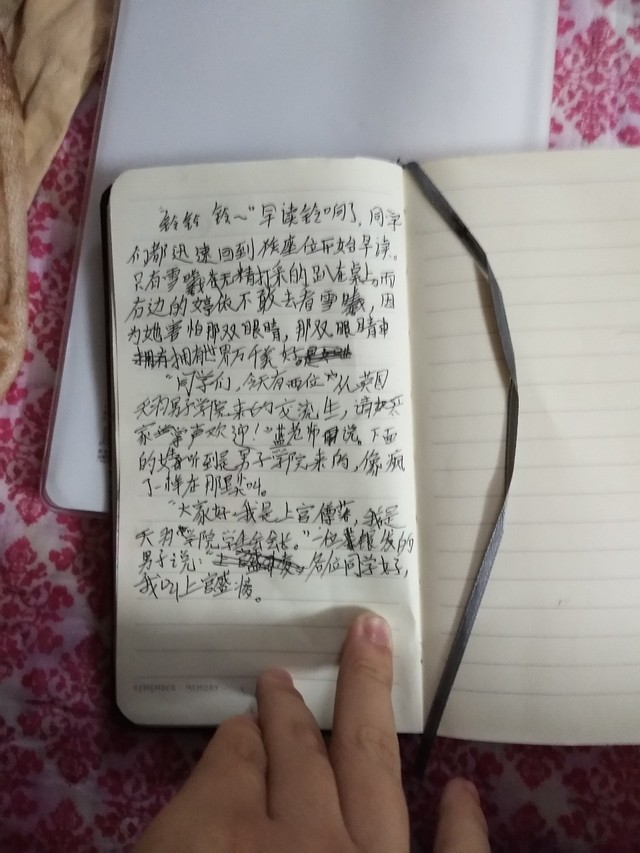 铃铃 铃～"早读铃响了,同学
们都迅速回到座位开始早读。
只有雪曦在无精打采的趴在桌上,而
右边的婷依不敢去看雪曦,因
为她害怕那双眼睛,那双眼睛中
拥有世界万
"同学们,今天有两位从英国
天羽男子学院来的交流生,请大
家掌声欢迎!"蓝老师说。下面
的听到是男子学院来的,像疯
了一样在那里尖叫。
"大家好,我是上官,我是
天羽学院学生会会长。"一位发的
男子说: 各位同学好,
我叫上官。
REMEMBER MEMORY